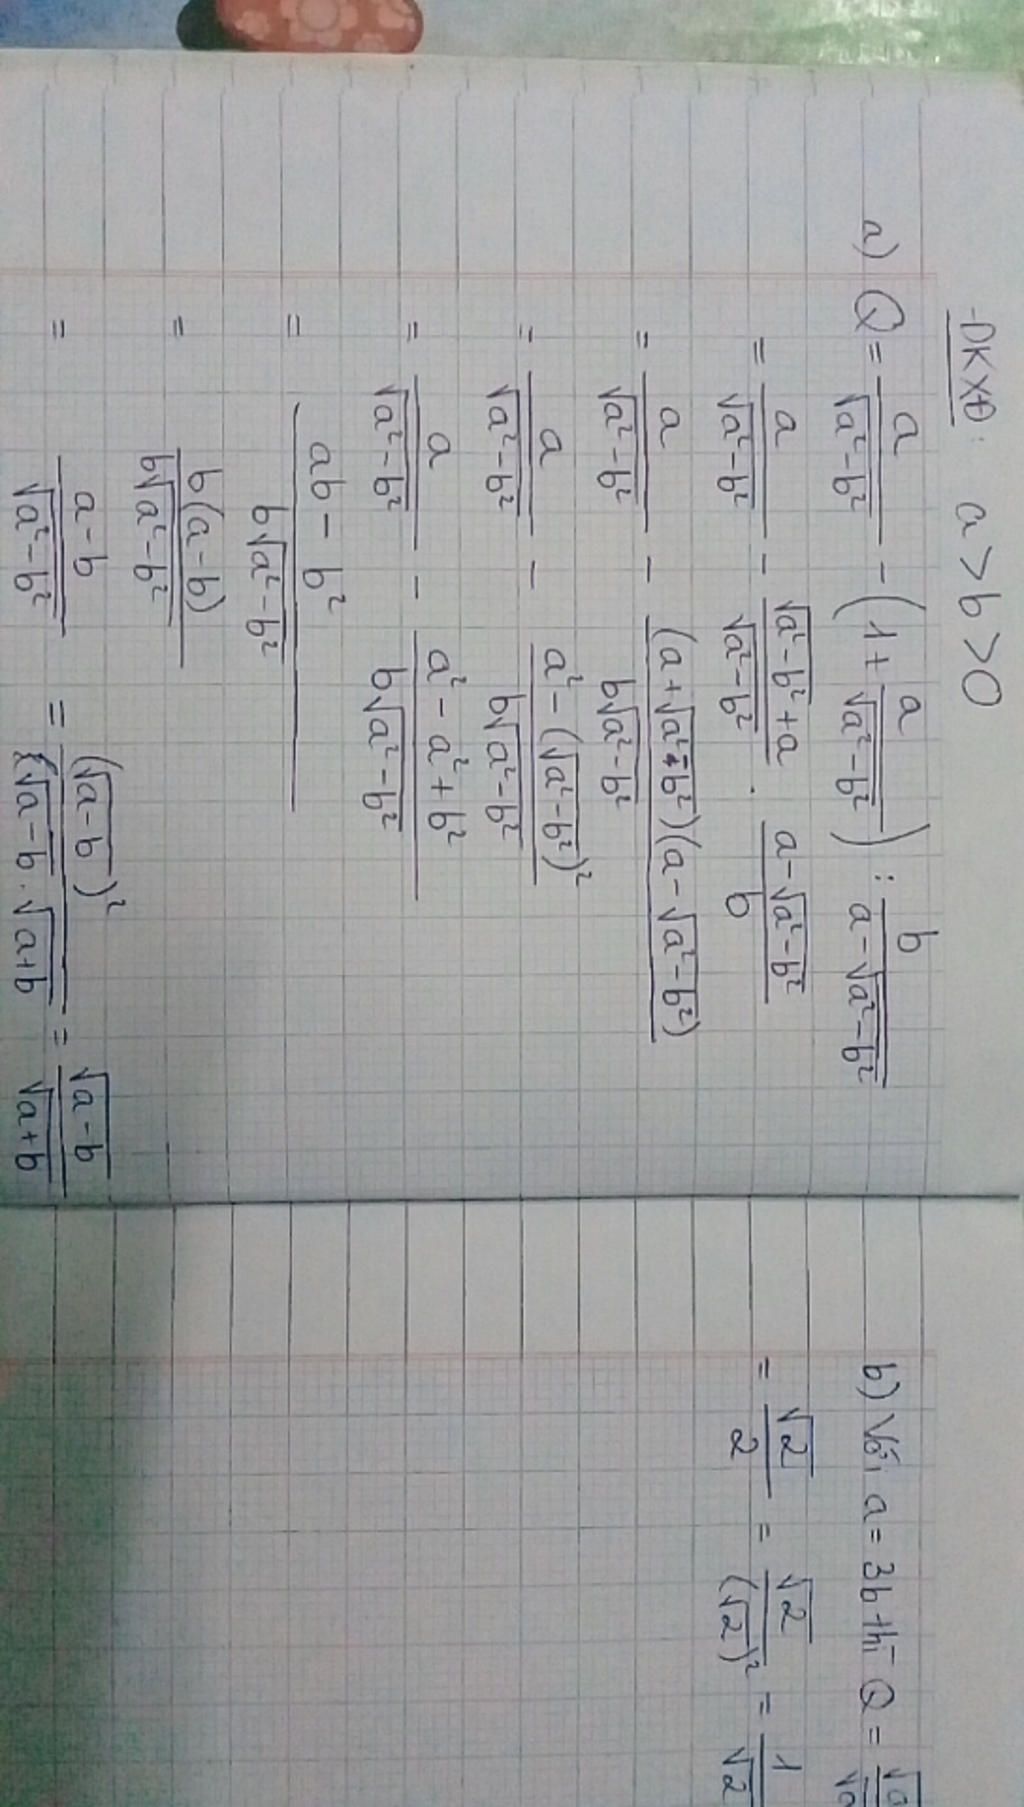 ĐKXĐ: a > b > 0
a) Q = a/√(a²-b²) - (1 + a/√(a²-b²)) : b/(a-√(a²-b²))
= a/√(a²-b²) - (√(a²-b²)+a)/√(a²-b²) . (a-√(a²-b²))/b
= a/√(a²-b²) - (a+√(a²-b²))(a-√(a²-b²))/(b√(a²-b²))
= a/√(a²-b²) - (a²-(√(a²-b²))²)/(b√(a²-b²))
= a/√(a²-b²) - (a²-a²+b²)/(b√(a²-b²))
= (ab-b²)/(b√(a²-b²))
= b(a-b)/(b√(a²-b²))
= (a-b)/√(a²-b²) = (√(a-b))²/(√(a-b).√(a+b)) = √(a-b)/√(a+b)
b) Với a = 3b thì Q =
= √2/2 = √2/(√2)² = 1/√2